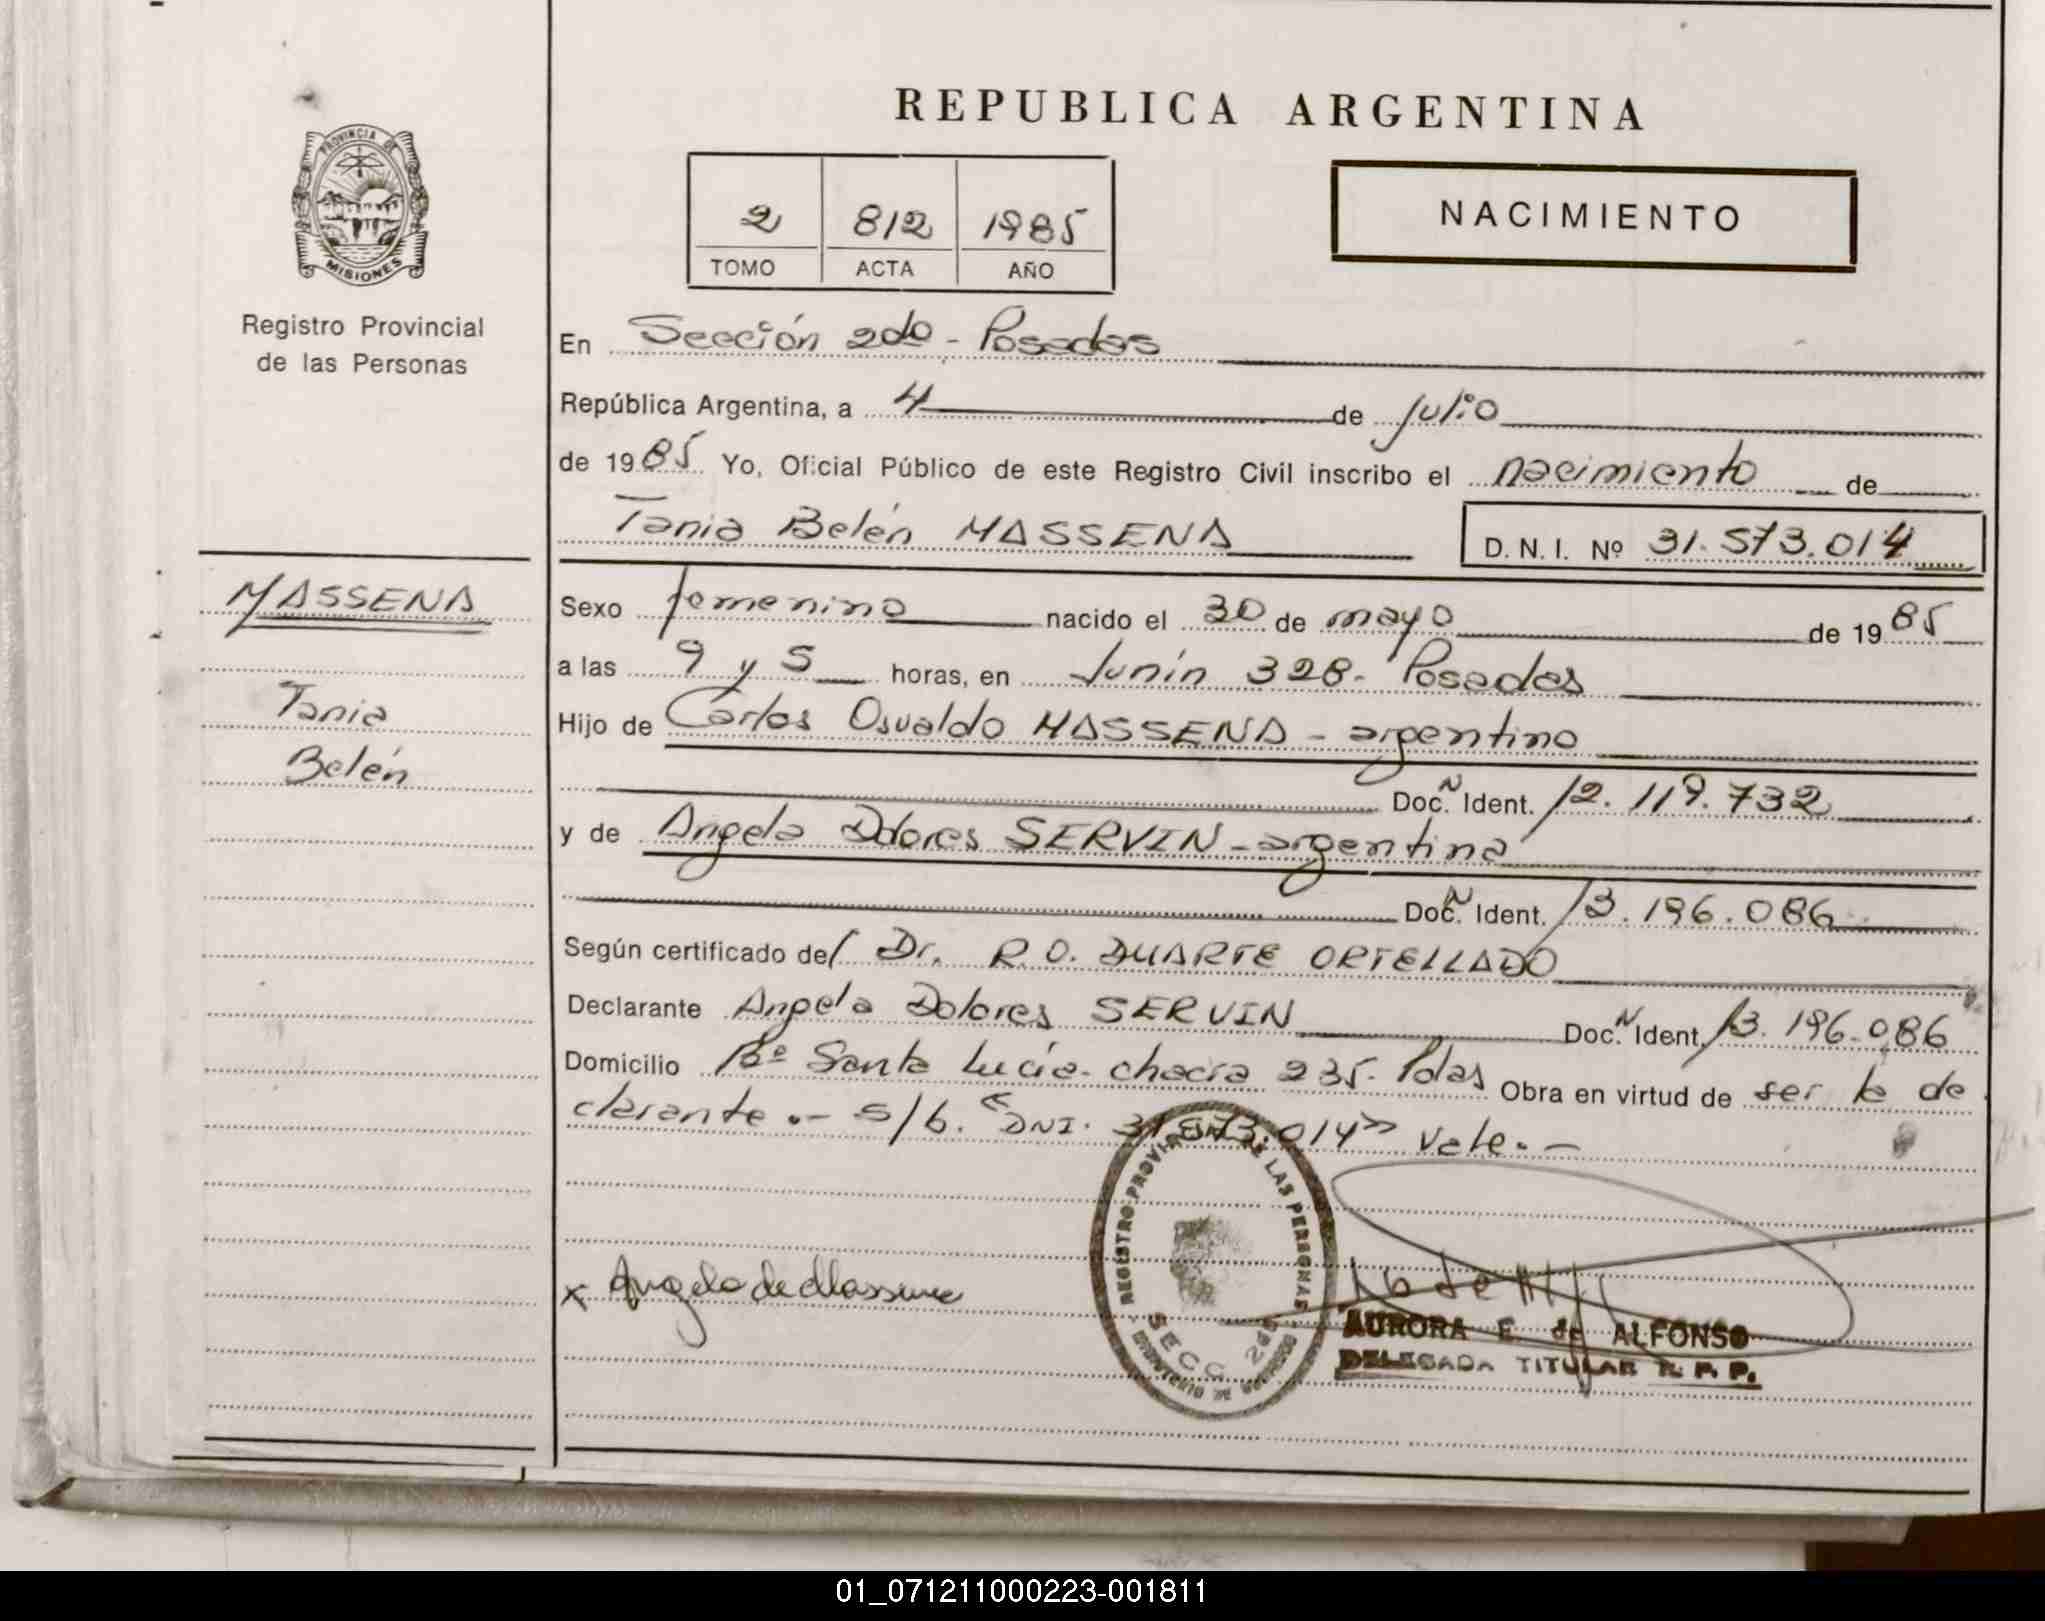 REPUBLICA ARGENTINA
NACIMIENTO
2 812 1985
TOMO ACTA AÑO
PROVINCIA DE
MISIONES
Registro Provincial
de las Personas
MASSENA
Tania
Belén
En Sección 2do - Posadas
República Argentina, a 4 de julio
de 1985 Yo, Oficial Público de este Registro Civil inscribo el nacimiento de
Tania Belén MASSENA D. N. I. Nº 31.573.014
Sexo femenino nacido el 30 de mayo de 1985
a las 9 y 5 horas, en Junín 328- Posadas
Hijo de Carlos Osvaldo MASSENA - argentino
Doc. N Ident. 12.119.732
y de Angela Dolores SERVIN - argentina
Doc. N Ident. 13.196.086
Según certificado del Dr. R.O. DUARTE ORTELLADO
Declarante Angela Dolores SERVIN Doc. N Ident. 13.196.086
Domicilio Bº Santa Lucía- chacra 235- Pdas Obra en virtud de ser la de
clarante.- s/b. "DNI. 31.573.014" Vale.-
REGISTRO PROVINCIAL DE LAS PERSONAS
SECC. 2da
x Angela de Massena
AURORA E. de ALFONSO
DELEGADA TITULAR R. P. P.
01_071211000223-001811